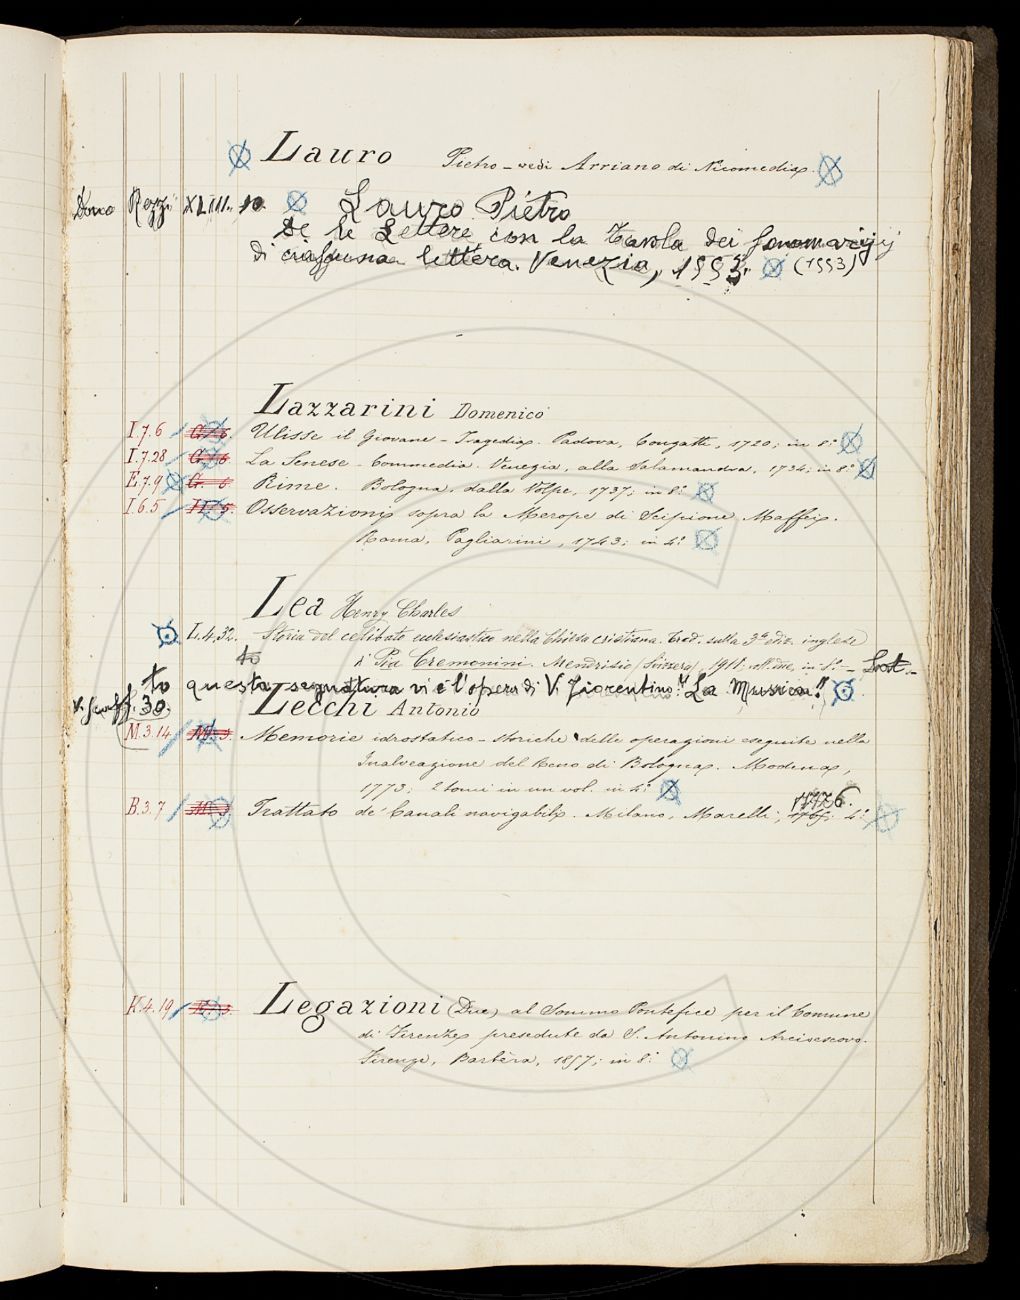 Lauro Pietro - vedi Arriano di Nicomedia.
Dono Rezzi XLIII. 10. Lauro Pietro
De le Lettere con la Tavola dei
di ciascuna lettera. Venezia, 1553. (1553)
Lazzarini Domenico
I.7.6 Ulisse il Giovane - Tragedia. Padova, Congatti, 1720; in 8.º
I.7.28 La Senese - Commedia. Venezia, alla Salamandra, 1734; in 8.º
E.7.9 G. 6 Rime. Bologna, dalla Volpe, 1737; in 8.º
I.6.5 Osservazioni sopra la Merope di Scipione Maffei.
Roma, Pagliarini, 1743; in 4.º
Lea Henry Charles
L.4.32. Storia del celibato ecclesiastico nella Chiesa cristiana. Trad. sulla 3ª ediz. inglese
di Pia Cremonini. Mendrisio (Svizzera), 1911: in 8.º -
to questa segnatura vi è l'opera di V. Fiorentino: "La Musica."
30.
Lecchi Antonio
M.3.14 M. 3. Memorie idrostatico - storiche delle operazioni eseguite nella
Inalveazione del Reno di Bologna. Modena,
1773; 2 tomi in un vol. in 4.º
B.3.7 M. 3 Trattato de' Canali navigabili. Milano, Marelli, 1776. 4.º
K.4.19 Legazioni (Due) al Sommo Pontefice per il Comune
di Firenze presedute da S. Antonino Arcivescovo.
Firenze, Barbèra, 1857; in 8.º